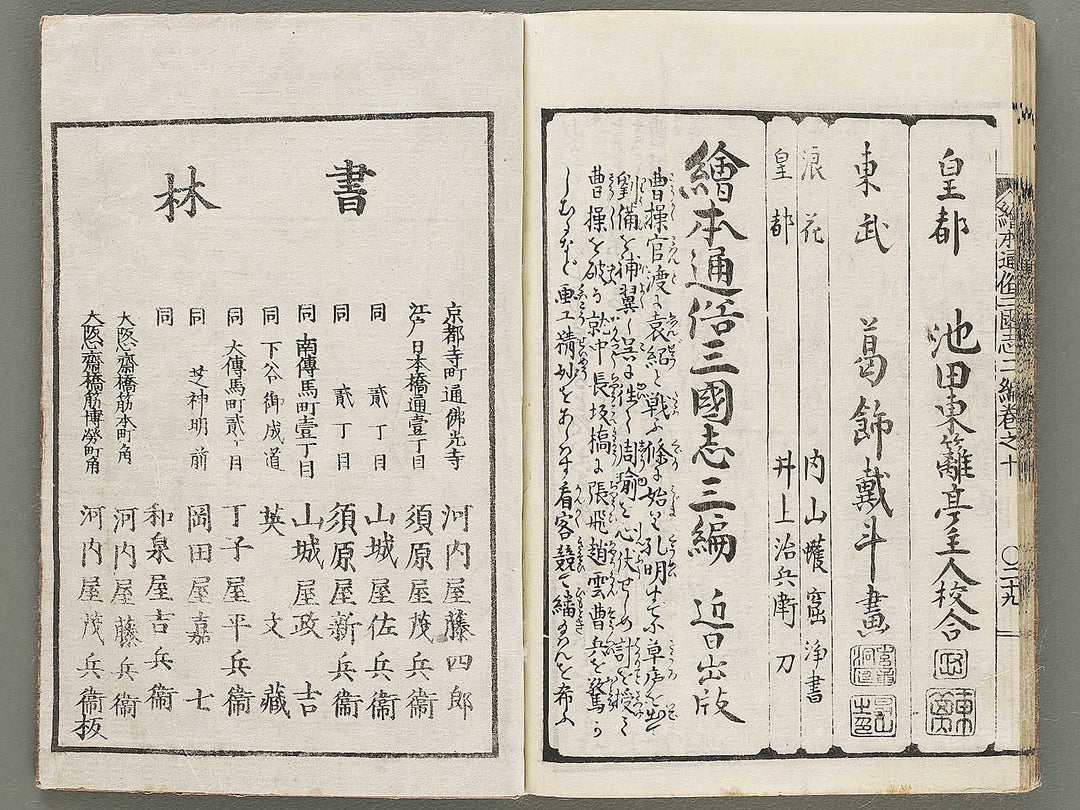 皇都 池田東籬亭主人校合
東武 葛飾戴斗畫
浪花 内山蠖窟浄書
皇都 井上治兵衛刀
繪本通俗三國志三編 近日出版
曹操官渡に袁紹と戦ふ條に始り孔明
劉備を補翼し呉に
周瑜を心伏せしめ計を
曹操を破る就中長坂橋に張飛趙雲曹兵を驚
画工精妙をあらはす看客競て繙
を希ふ
繪本通俗三國志二編巻之十
〇二十九
書林
京都寺町通佛光寺 河内屋藤四郎
江戸日本橋通壹丁目 須原屋茂兵衞
同 貳丁目 山城屋佐兵衞
同 貳丁目 須原屋新兵衞
同 南傳馬町壹丁目 山城屋政吉
同 下谷御成道 英文藏
同 大傳馬町貳丁目 丁子屋平兵衞
同 芝神明前 岡田屋嘉七
同 和泉屋吉兵衞
大阪心齋橋筋本町角 河内屋藤兵衞
大阪心齋橋筋博勞町角 河内屋茂兵衞板